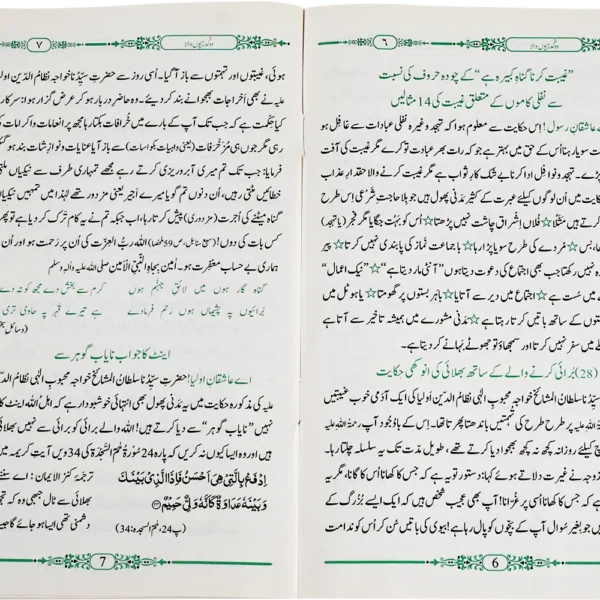 ٦
دو گدڑیوں والا
”غیبت کرنا گناہِ کبیرہ ہے“ کے چودہ حروف کی نسبت
سے نفلی کاموں کے متعلق غیبت کی 14 مثالیں
عاشقانِ رسول! اِس حکایت سے معلوم ہوا کہ تہجد وغیرہ نفلی عبادات سے غافل ہو
سویا رہنا اُس کے حق میں بہتر ہے جو کہ رات بھر عبادت تو کرے مگر غیبت کی آفت
پڑے۔ تہجد و نوافل ادا کرنا بے شک کارِ ثواب ہے مگر غیبت کرنے والا حقدارِ عذاب
کایت میں اُن لوگوں کیلئے عبرت کے کثیر مَدَنی پھول ہیں جو بلا حاجتِ شَرْعی اِس طرح
کرتے ہیں مثلًا ☆ فلاں اِشراق چاشت نہیں پڑھتا ☆ اُس کو بہت جگایا مگر فجر (یا تہجد)
بس ☆ مُردے کی طرح سویا پڑا رہا ☆ باجماعت نماز کی پابندی نہیں کرتا ☆ پیر
نہیں رکھتا جب بھی اجتماع کی دعوت دیتا ہوں ”آنٹی مار دیتا ہے“ ☆ ”نیک اعمال“
میں سُست ہے ☆ اجتماع میں دیر سے آتا یا ☆ باہر بستوں پر گھومتا ☆ یا ہوٹل میں
ستوں کے ساتھ باتیں کرتا رہتا ہے ☆ مَدَنی مشورے میں ہمیشہ تاخیر سے آتا ہے
لے میں سفر نہیں کرتا اور سمجھاؤ تو جھوٹے بہانے کر دیتا ہے۔
(28) بُرائی کرنے والے کے ساتھ بھلائی کی انوکھی حِکایت
سیِّدُنا سلطانُ المشائخ خواجہ محبوبِ الٰہی نظامُ الدّین اولیا کی ایک آدمی خوب غیبتیں
علیہ پر طرح طرح کی تُہمتیں باندھتا پھرتا تھا۔ اِس کے باوُجود آپ رحمۃُ اللہ علیہ
کیلئے روزانہ کچھ نہ کچھ بھجوا دیا کرتے تھے، طویل مدت تک یہ سلسلہ چلتا رہا۔
زوجہ نے غیرت دلاتے ہوئے کہا: دستور تو یہ ہے کہ جس کا کھانا اُس کا گانا، مگر یہ
ہے کہ جس کا کھانا اُسی پر غُرّانا! آپ بھی عجیب شخص ہیں کہ ایک ایسے بُزُرگ کے
ہیں جو بغیر سُوال آپ کے بچّوں کو پال رہا ہے! بیوی کی باتیں سُن کر اُس کو ندامت
6
٧
دو گدڑیوں والا
ہوئی، غیبتوں اور تہمتوں سے باز آ گیا۔ اُسی روز سے حضرتِ سیّدُنا خواجہ نظامُ الدّین اولیا
علیہ نے بھی اَخراجات بھجوانے بند کر دیئے۔ وہ حاضرِ دربار ہو کر عرض گزار ہوا: سرکار
کیا حکمت ہے کہ جب تک آپ کے بارے میں خُرافات بکتا رہا مجھ پر انعامات و اکرامات کی
رہی مگر جوں ہی مُزَخرفات (یعنی واہیات بکواسات) سے باز آیا عنایات و نوازشات بند ہو گئیں
فرمایا: جب تک تم میری آبرو ریزی کرتے رہے مجھے تمہاری طرف سے نیکیاں ملتی
خطائیں مٹتی رہیں، اُن دنوں تم گویا میرے اَجیر یعنی مزدور تھے لہٰذا میں تمہیں نیکیوں
گناہ مٹنے کی اُجرت (مزدوری) پیش کرتا رہا، اب جبکہ تم نے یہ کام ترک کر دیا ہے تو پھر
کس بات کی دوں! (سبع سنابل، ص 59 ملخصاً) اللہ ربُّ العزّت کی اُن پر رَحمت ہو اور اُن
ہماری بے حساب مغفِرت ہو۔ اٰمین بِجاہِ النَّبِیِّ الْاَمین صلی اللہ علیہ واٰلہٖ وسلم
گناہ گار ہوں میں لائقِ جہنّم ہوں کرم سے بخش دے مجھ کو نہ دے
بُرائیوں پہ پشیماں ہوں رحم فرما دے ہے تیرے قہر پہ حاوی تری
(وسائلِ
اینٹ کا جواب نایاب گوہر سے
اے عاشقانِ اولیا! حضرتِ سیّدُنا سلطانُ المشائخ خواجہ محبوبِ الٰہی نظامُ الدّین
علیہ کی مذکورہ حکایت میں یہ مَدَنی پھول بھی انتہائی خوشبودار ہے کہ اہلُ اللہ اینٹ کا
نہیں ”نایاب گوہر“ سے دیا کرتے ہیں! اللہ والے بُرائی کو برائی سے نہیں بھلائی
ہیں اور وہ ایسا کیوں نہ کریں کہ پارہ 24 سُورۂ حٰمٓ السَّجْدہ کی 34 ویں آیتِ کریمہ میں
اِدْفَعْ بِالَّتِیْ هِیَ اَحْسَنُ فَاِذَا الَّذِیْ بَیْنَكَ ترجمۂ کنز الایمان: اے سننے
وَ بَیْنَهٗ عَدَاوَةٌ كَاَنَّهٗ وَلِیٌّ حَمِیْمٌ بھلائی سے ٹال جبھی وہ کہ تجھ
(پ 24، حٰمٓ السجدہ: 34) دشمنی تھی ایسا ہو جائے گا جیسا
7